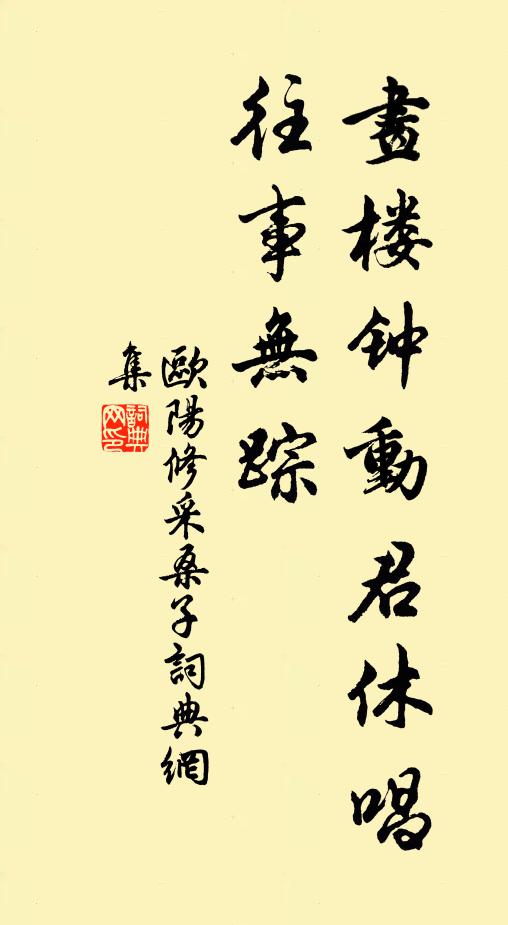 畫楼钟動君休唱
往事無踪
歐陽修采桑子詞典網
集
詞典
网印